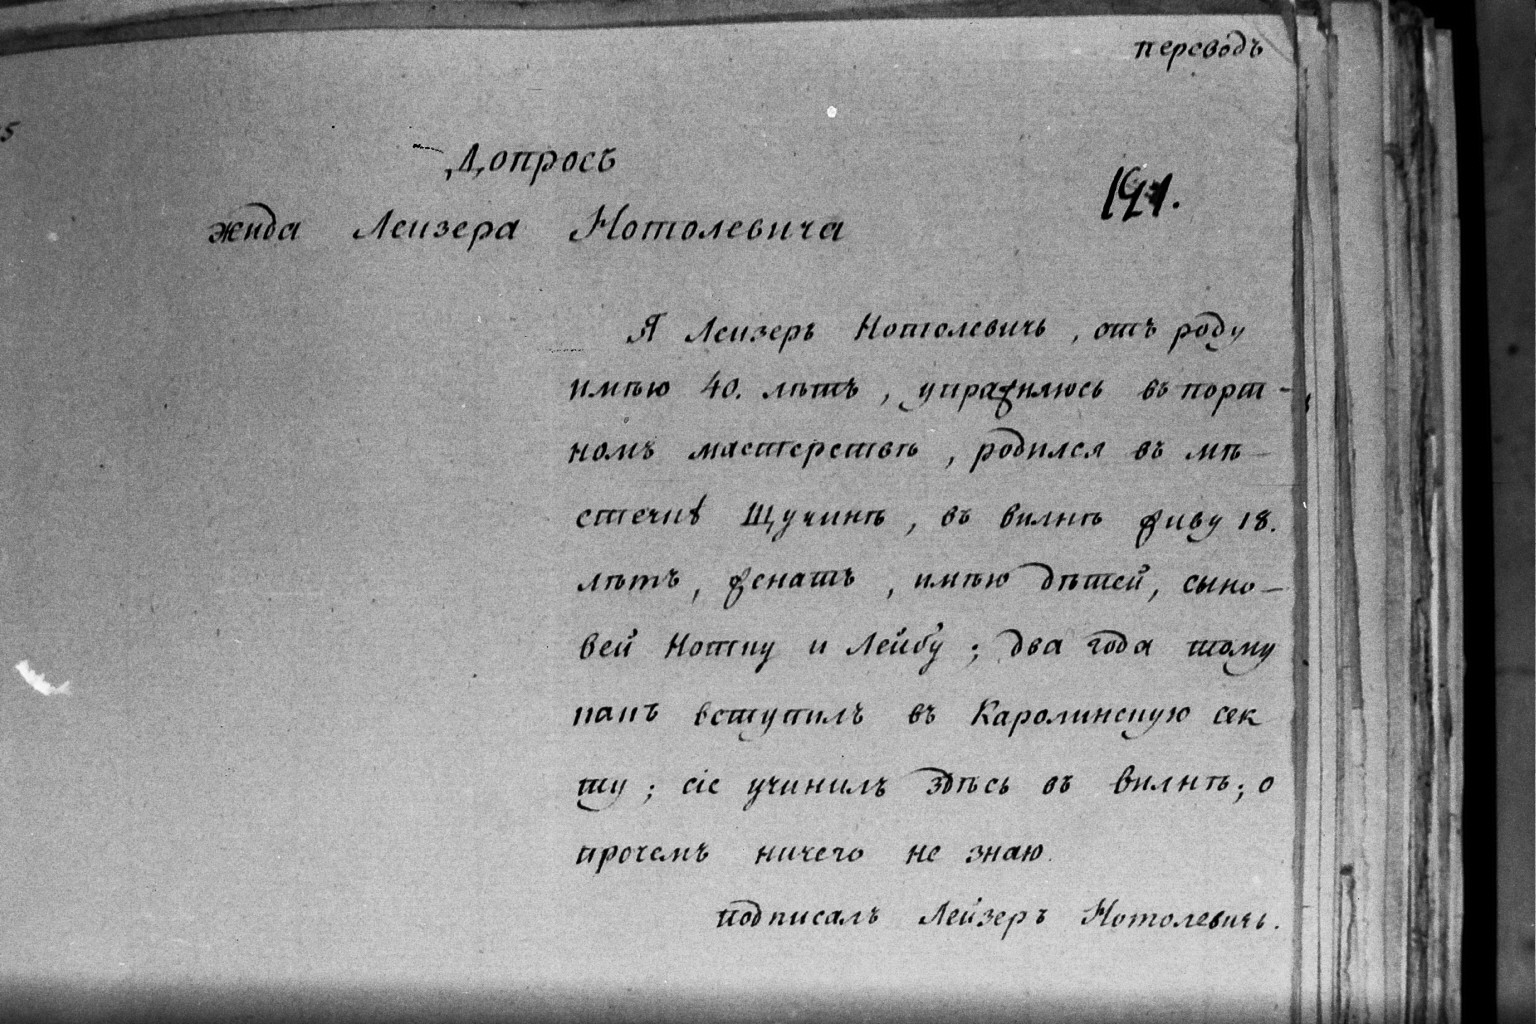 переводъ
Допросъ
191.
жида Леизера Нотолевича
Я Леизеръ Нотолевичь, отъ роду
имѣю 40. лѣтъ, упражнлюсь въ порт-
номъ мастерствѣ, родился въ мѣ-
стечкѣ Щучинѣ, въ вилнѣ живу 18.
лѣтъ, женатъ, имѣю дѣтей, сыно-
вей Нотку и Лейбу; два года тому
какъ вступилъ въ Каролинскую сек
ту; сіе учинилъ здѣсь въ вилнѣ; о
прочемъ ничего не знаю.
подписалъ Лейзеръ Нотолевичь.